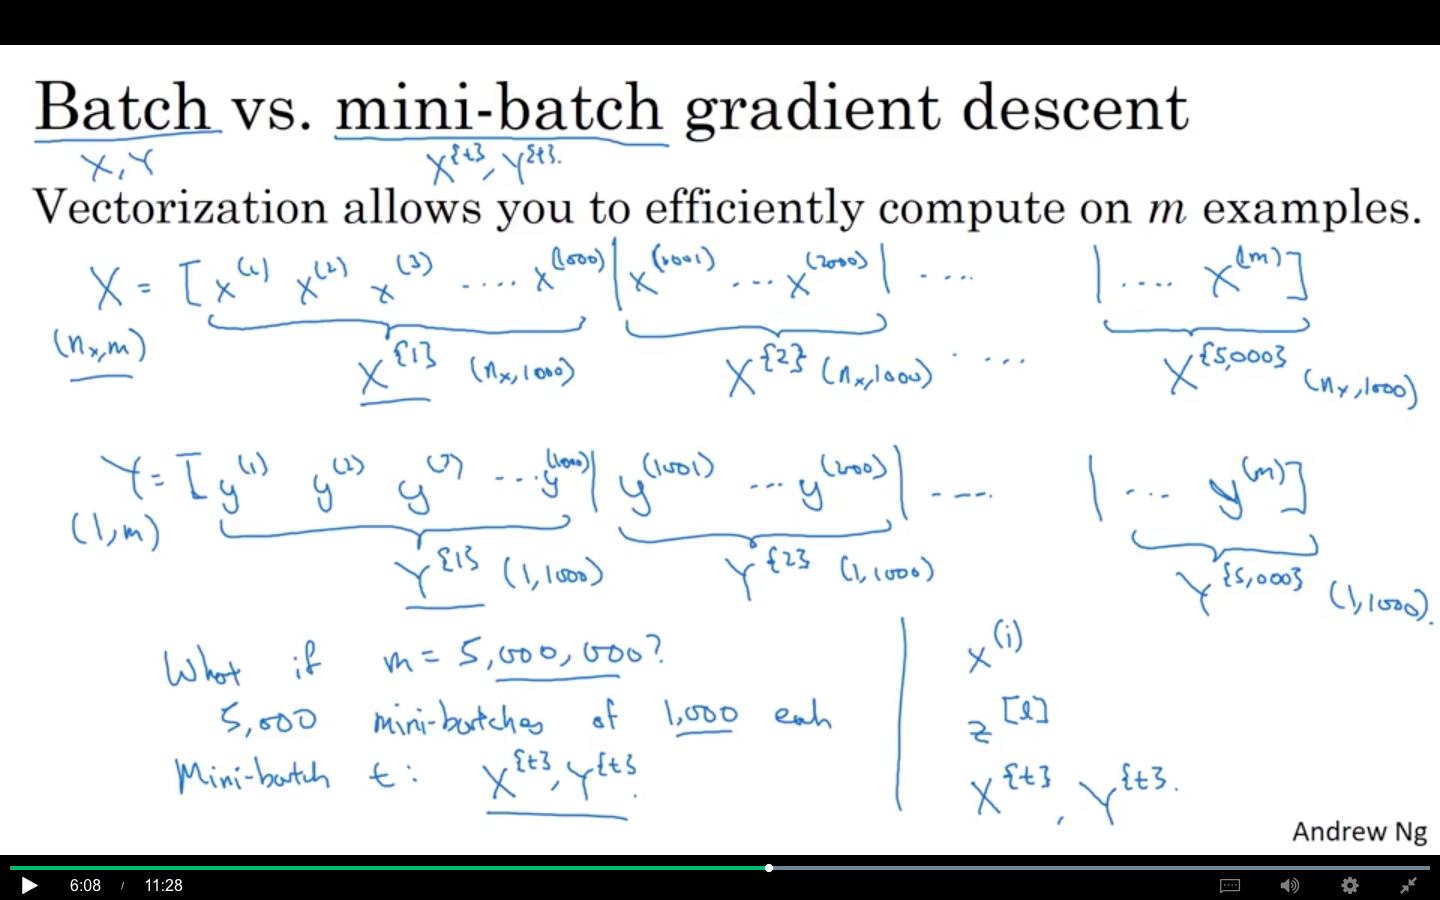 Batch vs. mini-batch gradient descent
X, Y X^{t}, Y^{t}.
Vectorization allows you to efficiently compute on m examples.
X = [x^(1) x^(2) x^(3) .... x^(1000) | x^(1001) ... x^(2000) | .... | .... x^(m)]
(n_x, m) X^{1} (n_x, 1000) X^{2} (n_x, 1000) .... X^{5,000} (n_x, 1000)
Y = [y^(1) y^(2) y^(3) ... y^(1000) | y^(1001) ... y^(2000) | .... | ... y^(m)]
(1, m) Y^{1} (1, 1000) Y^{2} (1, 1000) Y^{5,000} (1, 1000).
What if m = 5,000,000?
5,000 mini-batches of 1,000 each
Mini-batch t: X^{t}, Y^{t}.
x^(i)
z^[l]
X^{t}, Y^{t}.
Andrew Ng
6:08 / 11:28